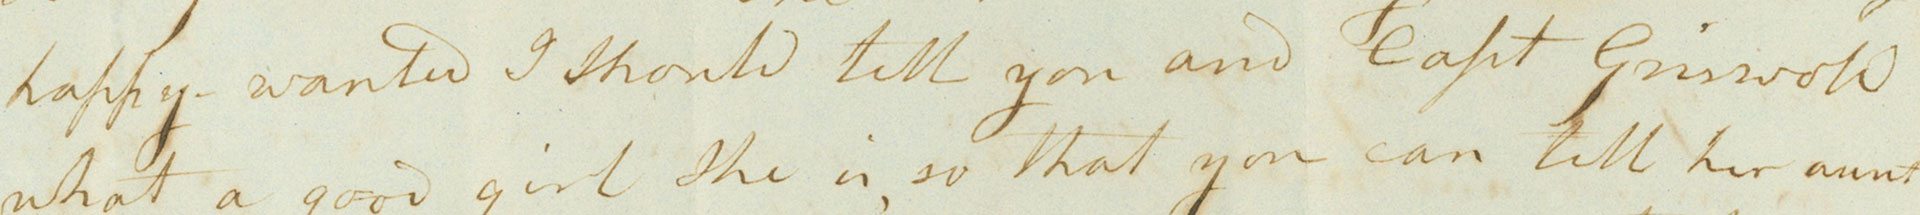 happy- wanted I should tell you and Capt Griswold
what a good girl she is, so that you can tell her aunt